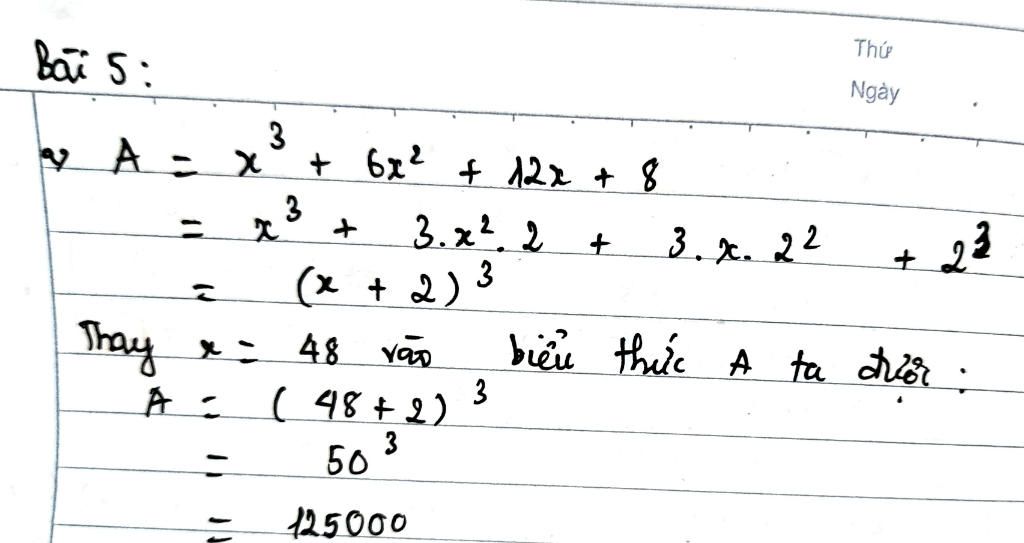 Thứ
Ngày
Bài 5:
a, A = x³ + 6x² + 12x + 8
= x³ + 3.x².2 + 3.x.2² + 2³
= (x + 2)³
Thay x = 48 vào biểu thức A ta được:
A = (48 + 2)³
= 50³
= 125000